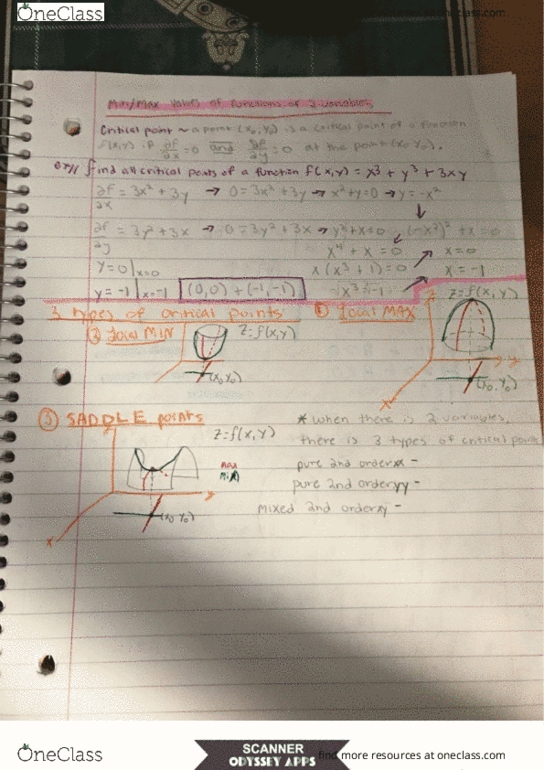 OneClass
oneclass.com
Min/Max values of functions of 2 variables
Critical point ~ a point (x₀,y₀) is a critical point of a function
f(x,y) if ∂f/∂x = 0 and ∂f/∂y = 0 at the point (x₀,y₀).
ex// find all critical points of a function f(x,y) = x³ + y³ + 3xy
∂f/∂x = 3x² + 3y → 0 = 3x² + 3y → x² + y = 0 → y = -x²
∂f/∂y = 3y² + 3x → 0 = 3y² + 3x → y² + x = 0 (-x²)² + x = 0
x⁴ + x = 0 x = 0
y = 0 | x = 0 x(x³ + 1) = 0 x = -1
y = -1 | x = -1 (0,0) + (-1,-1) x³ = -1
3 types of critical points
① Local MAX z = f(x,y)
② Local MIN z = f(x,y)
y
(x₀,y₀)
(x₀,y₀)
x
③ SADDLE points
z = f(x,y)
max
min
(x₀ y₀)
x
* when there is 2 variables,
there is 3 types of critical point
pure 2nd order xx -
pure 2nd order yy -
mixed 2nd order xy -
OneClass
SCANNER
ODYSSEY APPS
find more resources at oneclass.com